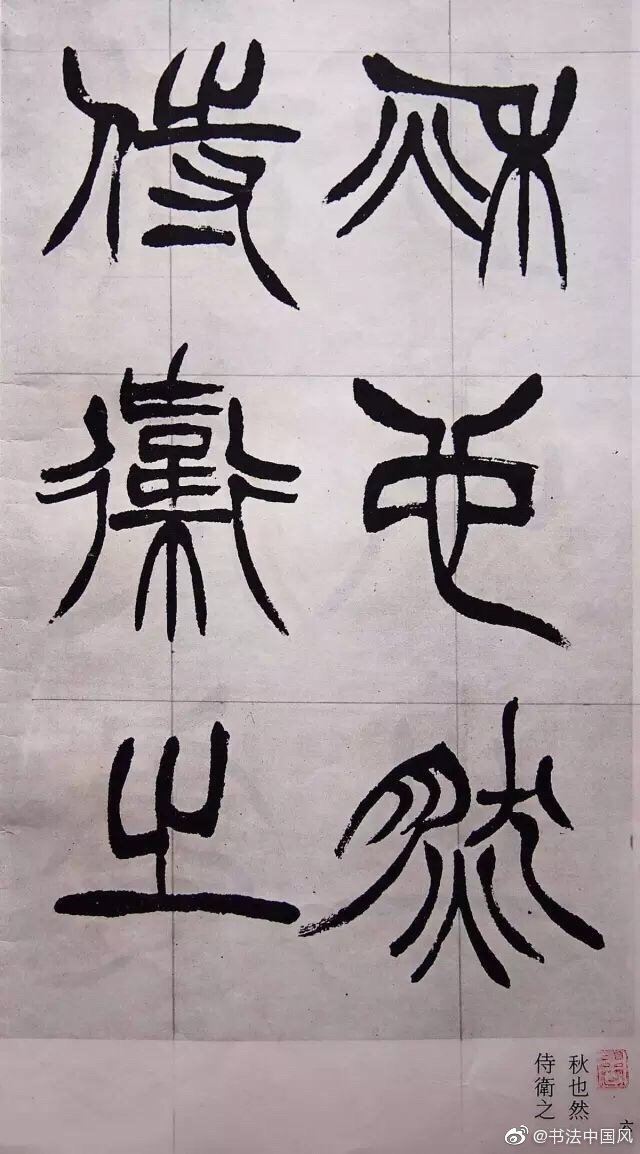 秋也然
侍衛之
秋也然
侍衛之
六
@书法中国风